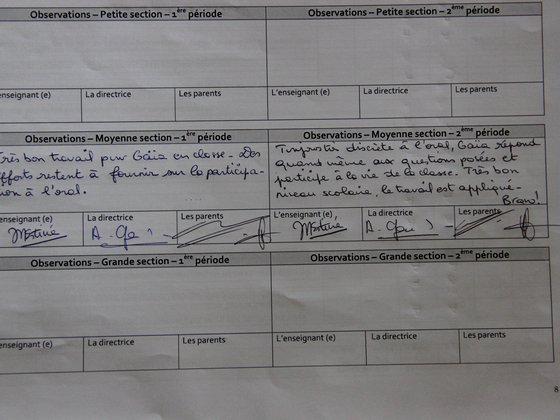 Observations – Petite section – 1ère période
Observations – Petite section – 2ème période
'enseignant (e)
La directrice
Les parents
L'enseignant (e)
La directrice
Les parents
Observations – Moyenne section – 1ère période
Observations – Moyenne section – 2ème période
Très bon travail pour Gaïa en classe - Des
efforts restent à fournir sur la participa-
tion à l'oral.
Toujours discrète à l'oral, Gaïa répond
quand même aux questions posées et
participe à la vie de la classe. Très bon
niveau scolaire, le travail est appliqué -
Bravo!
enseignant (e)
La directrice
Les parents
L'enseignant (e)
La directrice
Les parents
Martine
Martine
Observations – Grande section – 1ère période
Observations – Grande section – 2ème période
enseignant (e)
La directrice
Les parents
L'enseignant (e)
La directrice
Les parents
8